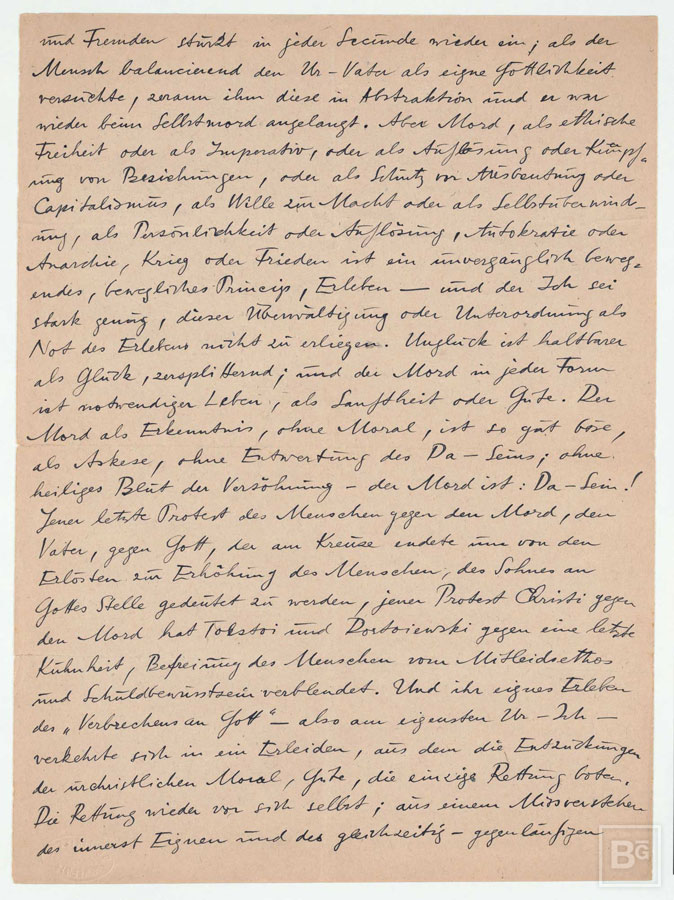 und Fremden stürzt in jeder Secunde wieder ein; als der
Mensch balancierend den Ur-Vater als eigne Göttlichkeit
versuchte, zerann ihm diese in Abstraktion und er war
wieder beim Selbstmord angelangt. Aber Mord, als ethische
Freiheit oder als Imperativ, oder als Auflösung oder Knüpf-
ung von Beziehungen, oder als Schutz vor Ausbeutung oder
Capitalismus, als Wille zur Macht oder als Selbstüberwind-
ung, als Persönlichkeit oder Auflösung, Autokratie oder
Anarchie, Krieg oder Frieden ist ein unvergänglich beweg-
endes, bewegliches Princip, Erleben — und der Ich sei
stark genug, dieser Überwältigung oder Unterordnung als
Not des Erlebens nicht zu erliegen. Unglück ist haltbarer
als Glück, zersplitternd; und der Mord in jeder Form
ist notwendiger Leben, als Sanftheit oder Güte. Der
Mord als Erkenntnis, ohne Moral, ist so gut böse,
als Askese, ohne Entwertung des Da-Seins; ohne
heiliges Blut der Versöhnung – der Mord ist: Da-Sein!
Jener letzte Protest des Menschen gegen den Mord, den
Vater, gegen Gott, der am Kreuze endete um von den
Erlösten zur Erhöhung des Menschen, des Sohnes an
Gottes Stelle gedeutet zu werden, jener Protest Christi gegen
den Mord hat Tolstoi und Dostoiewski gegen eine letzte
Kühnheit, Befreiung des Menschen vom Mitleidsethos
und Schuldbewusstsein verblendet. Und ihr eignes Erleben
des „Verbrechens an Gott" – also am eigensten Ur-Ich –
verkehrte sich in ein Erleiden, aus dem die Entzückungen
der urchristlichen Moral, Güte, die einzige Rettung boten.
Die Rettung wieder vor sich selbst; aus einem Missverstehen
des innerst Eignen und des gleichzeitig-gegenläufigen
BG